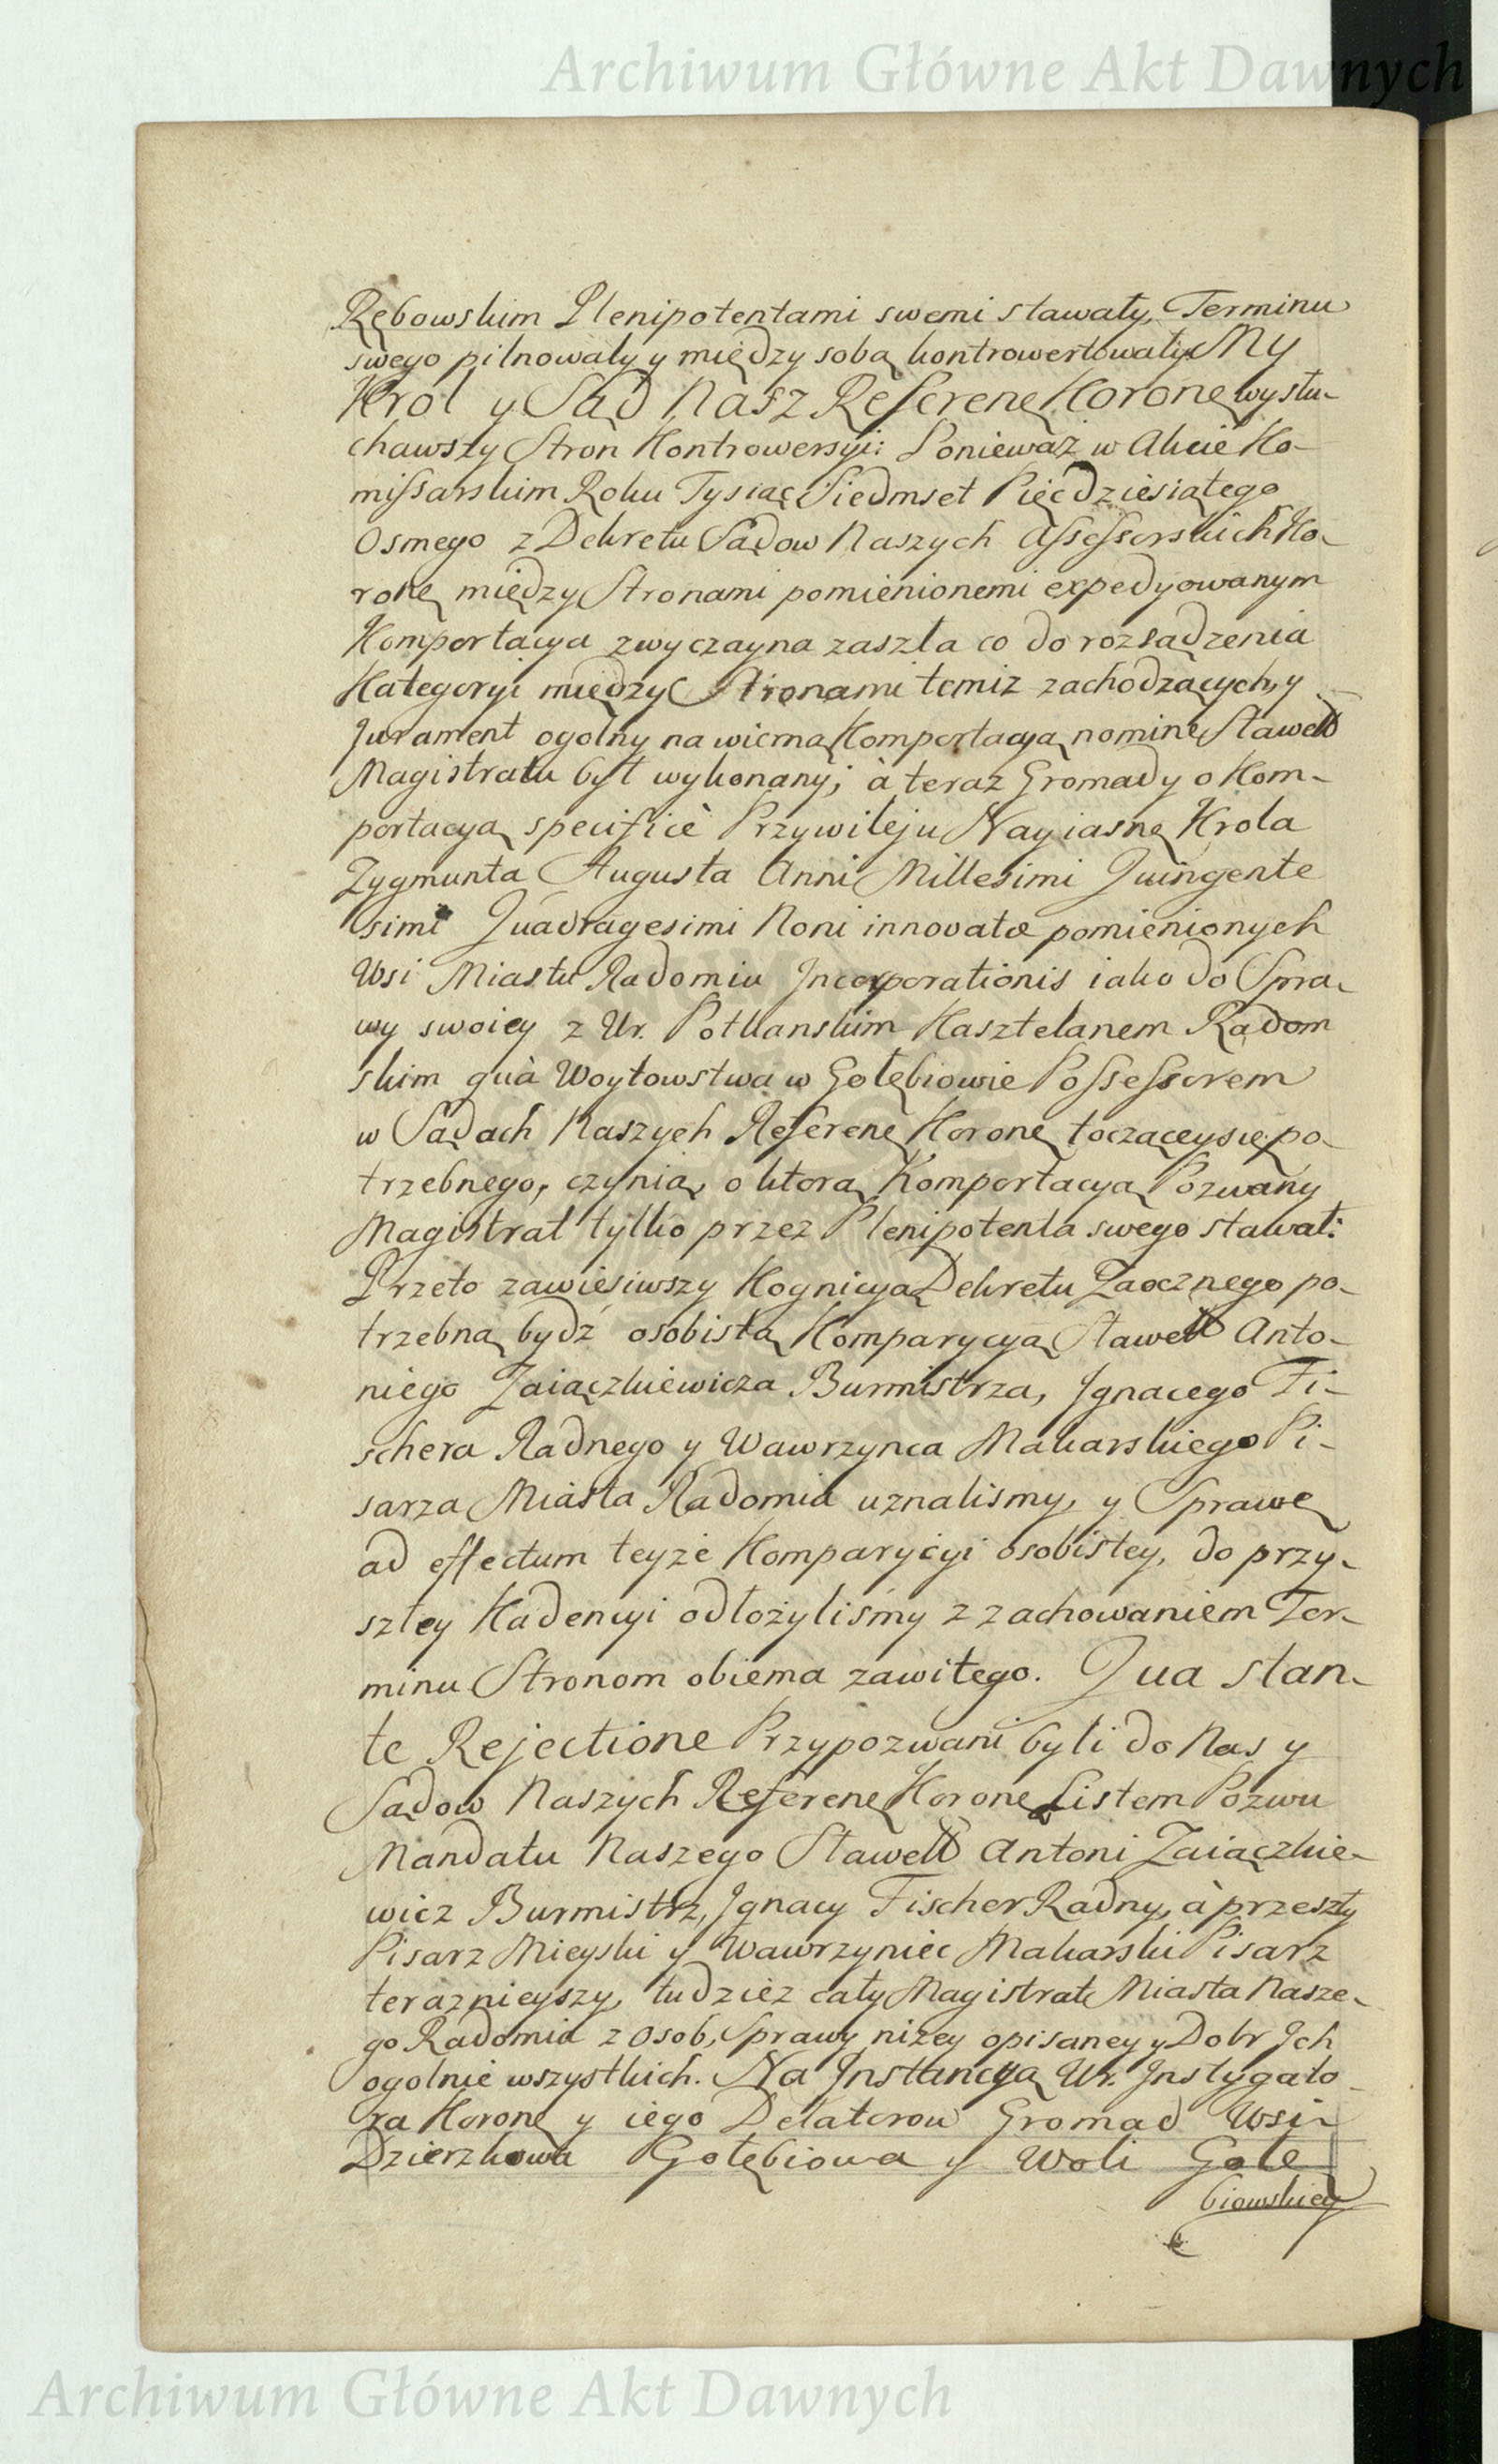 Archiwum Główne Akt Dawnych
Rębowskim Plenipotentami swemi stawały, Terminu
swego pilnowały y między sobą kontrowertowały. My
Krol y Sąd Nasz Referenę Koronę wysłu-
chawszy Stron Kontrowersyi: Ponieważ w Akcie Ko-
missarskim Roku Tysiąc Siedmset Pięcdziesiątego
Osmego z Dekretu Sądow Naszych Assessorskich Ko-
ronę między Stronami pomienionemi expedyowanym
Komportacya zwyczayna zaszła co do rozsądzenia
Kategoryi między Stronami temiz zachodzących, y
Jurament ogolny na wierną Komportacyą nominę Sławett
Magistratu był wykonany; à teraz Gromady o Kom-
portacyą specificè Przywileju Nayiasnę Krola
Zygmunta Augusta Anni Millesimi Quingente
simi Quadragesimi Noni innovatæ pomienionych
Wsi Miastu Radomiu Incorporationis iako do Spra-
wy swoiey z Ur. Potkanskim Kasztelanem Radom
skim quà Woytowstwa w Gołębiowie Possessorem
w Sądach Naszych Referenę Koronę toczącey się po-
trzebnego, czynią, o ktorą Komportacyą Pozwany
Magistrat tylko przez Plenipotenta swego stawał:
Przeto zawiesiwszy Kognicyą Dekretu Zaocznego po-
trzebną bydź osobistą Komparycyą Sławett Anto-
niego Zaiączkiewicza Burmistrza, Ignacego Fi-
schera Radnego y Wawrzynca Makarskiego Pi-
sarza Miasta Radomia uznalismy, y Sprawę
ad effectum teyże Komparycyi osobistey, do przy-
szłey Kadencyi odłożyliśmy z zachowaniem Ter-
minu Stronom obiema zawitego. Qua stan-
te Rejectione Przypozwani byli do Nas y
Sądow Naszych Referenę Koronę Listem Pozwu
Mandatu Naszego Sławett Antoni Zaiączkie-
wicz Burmistrz, Ignacy Fischer Radny, à przeszły
Pisarz Mieyski y Wawrzyniec Makarski Pisarz
teraznieyszy, tudziez cały Magistrat Miasta Nasze-
go Radomia z Osob, Sprawy niżey opisaney y Dobr Ich
ogolnie wszystkich. Na Instancyą Ur. Instygato-
ra Koronę y iego Delatorow Gromad Wsi
Dzierzkowa Gołębiowa y Woli Gołę
biowskiey
Archiwum Główne Akt Dawnych